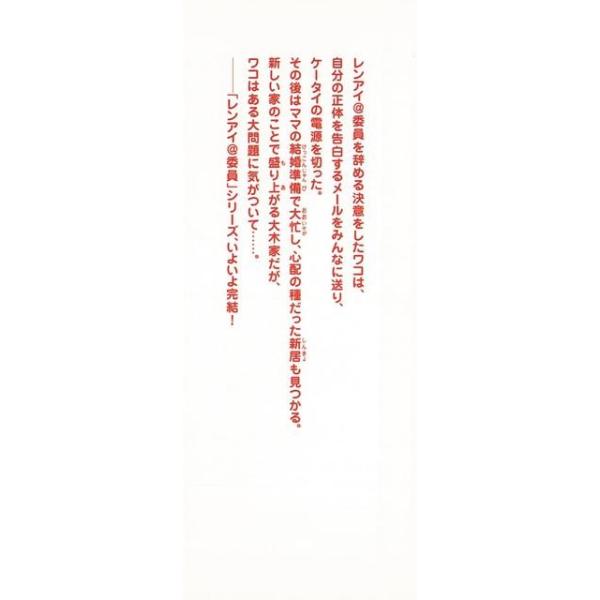 レンアイ@委員を辞める決意をしたワコは、
自分の正体を告白するメールをみんなに送り、
ケータイの電源を切った。
その後はママの結婚準備で大忙し、心配の種だった新居も見つかる。
新しい家のことで盛り上がる大木家だが、
ワコはある大問題に気がついて……。
――「レンアイ@委員」シリーズ、いよいよ完結！